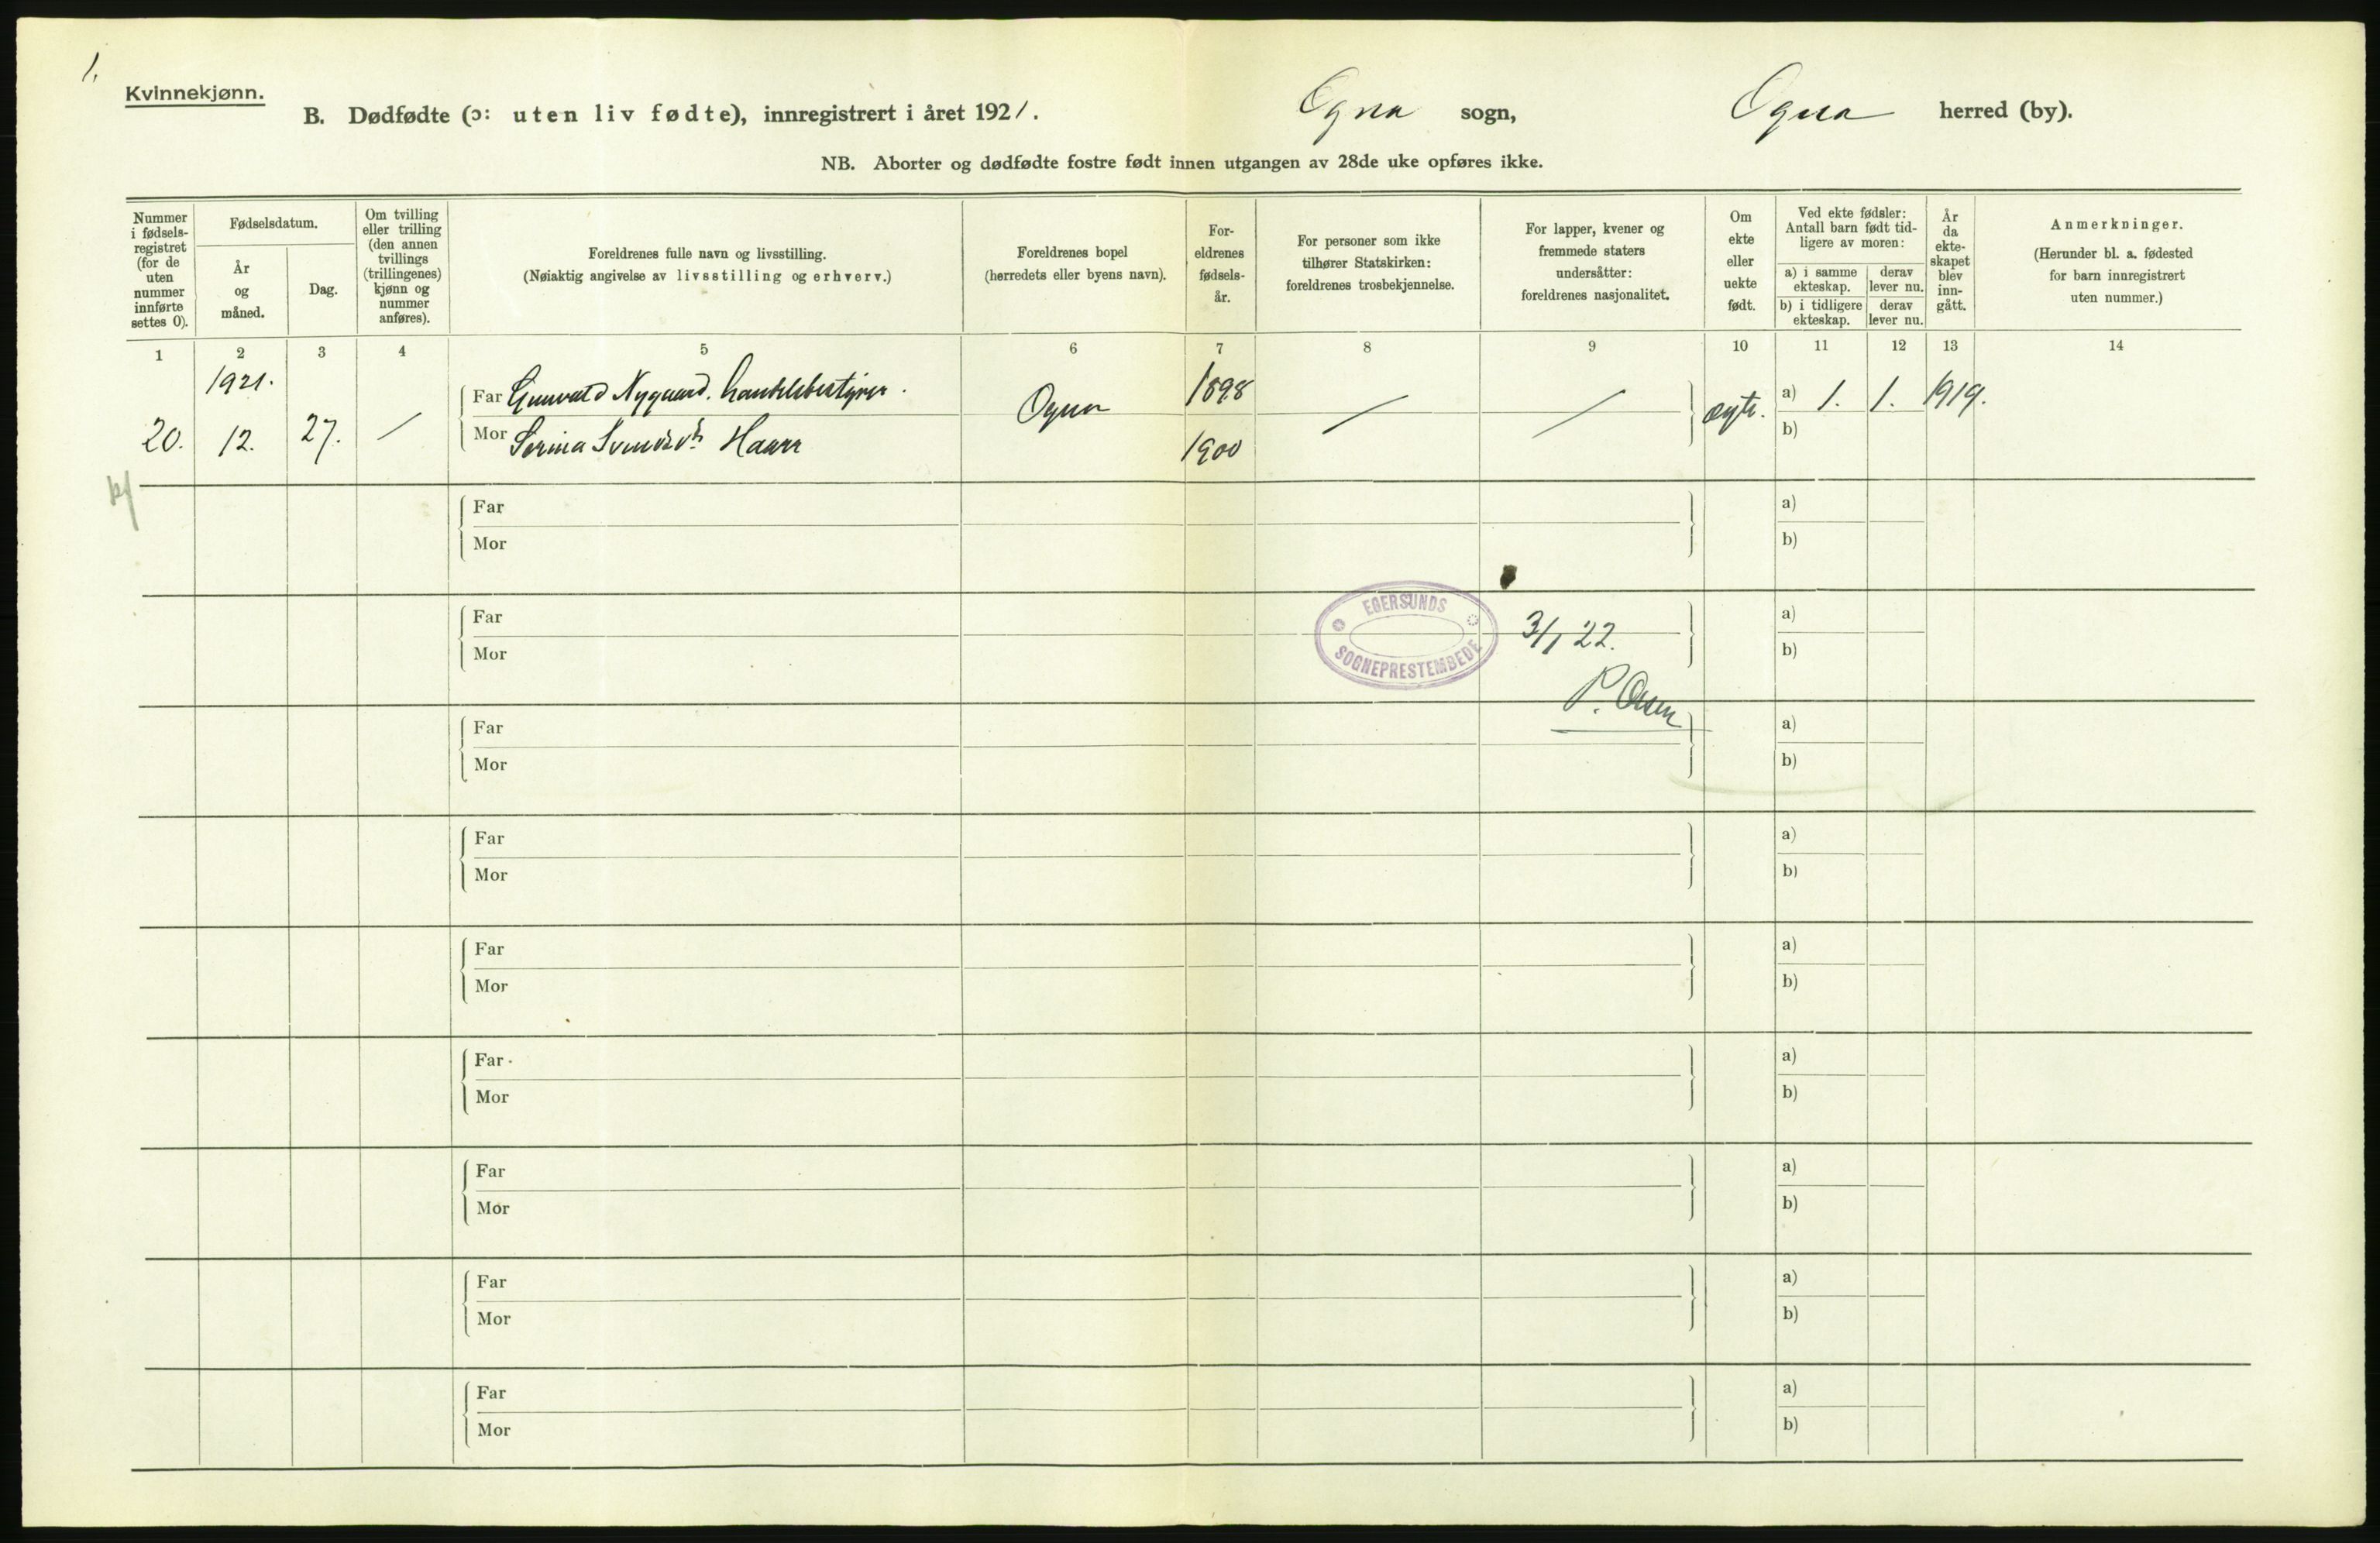 1.
Kvinnekjønn.
B. Dødfødte (ɔ: uten liv fødte), innregistrert i året 1921. Ogna sogn, Ogna herred (by).
NB. Aborter og dødfødte fostre født innen utgangen av 28de uke opføres ikke.
Nummer i fødsels-registret (for de uten nummer innførte settes 0).
Fødselsdatum.
År og måned.
Dag.
Om tvilling eller trilling (den annen tvillings (trillingenes) kjønn og nummer anføres).
Foreldrenes fulle navn og livsstilling.
(Nøiaktig angivelse av livsstilling og erhverv.)
Foreldrenes bopel
(herredets eller byens navn).
For-eldrenes fødsels-år.
For personer som ikke tilhører Statskirken: foreldrenes trosbekjennelse.
For lapper, kvener og fremmede staters undersåtter: foreldrenes nasjonalitet.
Om ekte eller uekte født.
Ved ekte fødsler: Antall barn født tid-ligere av moren:
a) i samme ekteskap.
derav lever nu.
b) i tidligere ekteskap.
derav lever nu.
År da ekte-skapet blev inn-gått.
Anmerkninger.
(Herunder bl. a. fødested for barn innregistrert uten nummer.)
1 2 3 4 5 6 7 8 9 10 11 12 13 14
1921.
Far Gunvald Nygaard. handelsbestyrer. 1898
20. 12. 27. / Ogna / / ægte. a) 1. 1. 1919.
Mor Serina Svendsdtr Haarr 1900 b)
Far a)
Mor b)
EGERSUNDS
SOGNEPRESTEMBEDE
Far 3/1 22. a)
Mor b)
P. Olsen
Far a)
Mor b)
Far a)
Mor b)
Far a)
Mor b)
Far a)
Mor b)
Far a)
Mor b)
Far a)
Mor b)
Far a)
Mor b)